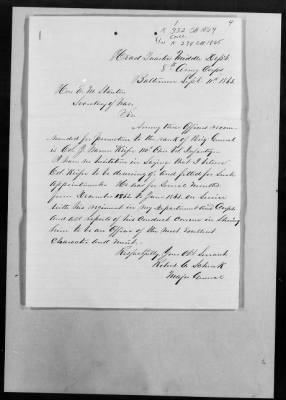 1
4
K 732 CB 1864
Encl
K 270 CB 1865
Head Quarters Middle Dept
8th Army Corps
Baltimore Sept. 11th 1863
Hon E. M. Stanton
Secretary of War,
Sir
Among those Officers recom-
mended for promotion to the rank of Brig General
is Col J. Warren Keifer 110th Ohio Vol Infantry—
I have no hesitation in saying that I believe
Col Keifer to be deserving of and fitted for such
Appointment. He was for several months
from December 1862 to June 1863 on service
with his regiment in my Department and Corps
and all reports of his conduct concur in showing
him to be an officer of the most excellent
Character and merit.
Respectfully Your Obt Servant
Robert C. Schenck
Major General